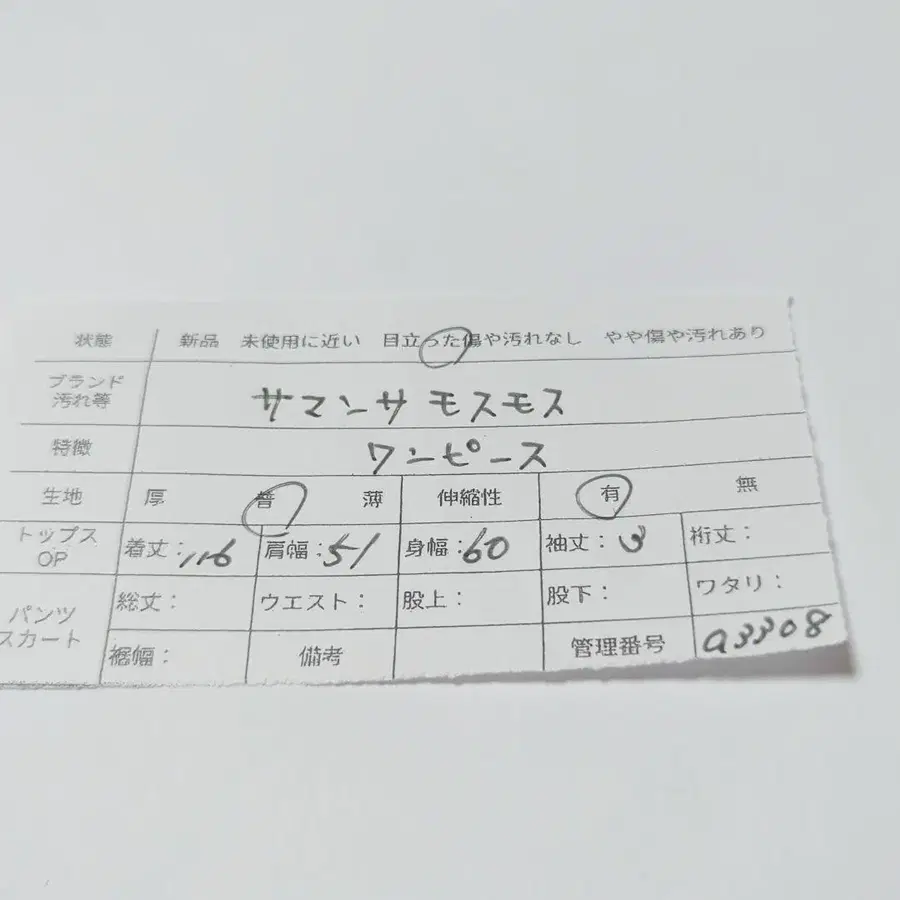 状態 新品 未使用に近い 目立った傷や汚れなし やや傷や汚れあり
ブランド
汚れ等 サマンサ モスモス
特徴 ワンピース
生地 厚 普 薄 伸縮性 有 無
トップス
OP 着丈:116 肩幅:51 身幅:60 袖丈:3 裄丈:
パンツ
スカート 総丈: ウエスト: 股上: 股下: ワタリ:
裾幅: 備考 管理番号 a3308